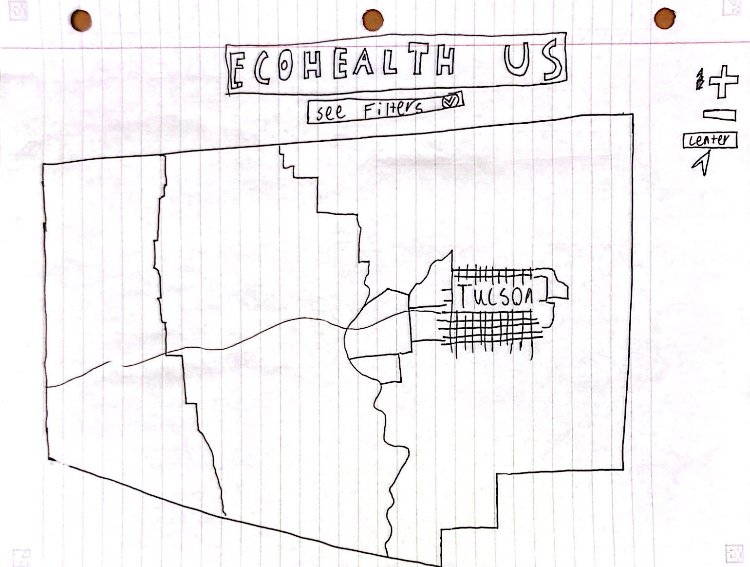 ECOHEALTH US
see Filters
center
Tucson